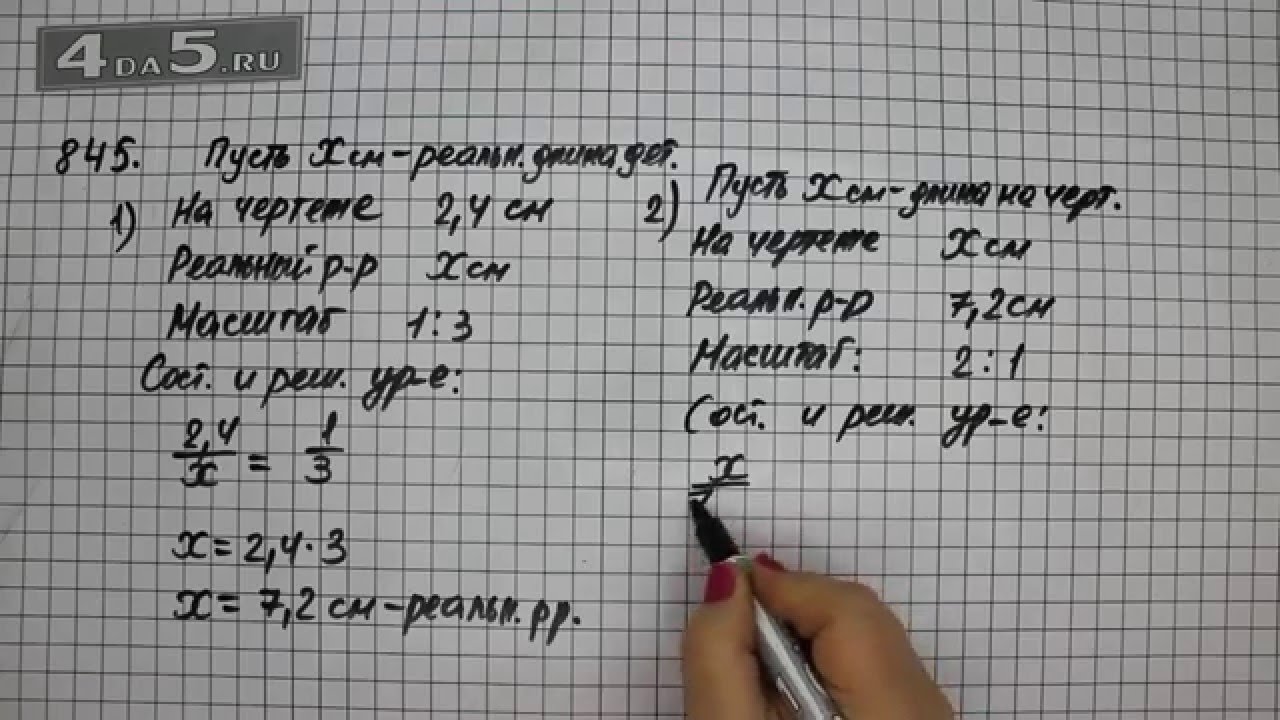 4DA5.RU
845. Пусть X см – реальн. длина дет.
1) На чертеже 2,4 см
Реальный р-р X см
Масштаб 1:3
Сост. и реш. ур-е:
2,4/x = 1/3
x = 2,4·3
x = 7,2 см – реальн. рр.
2) Пусть X см – длина на черт.
На чертеже X см
Реальн. р-р 7,2 см
Масштаб: 2:1
Сост. и реш. ур-е:
x